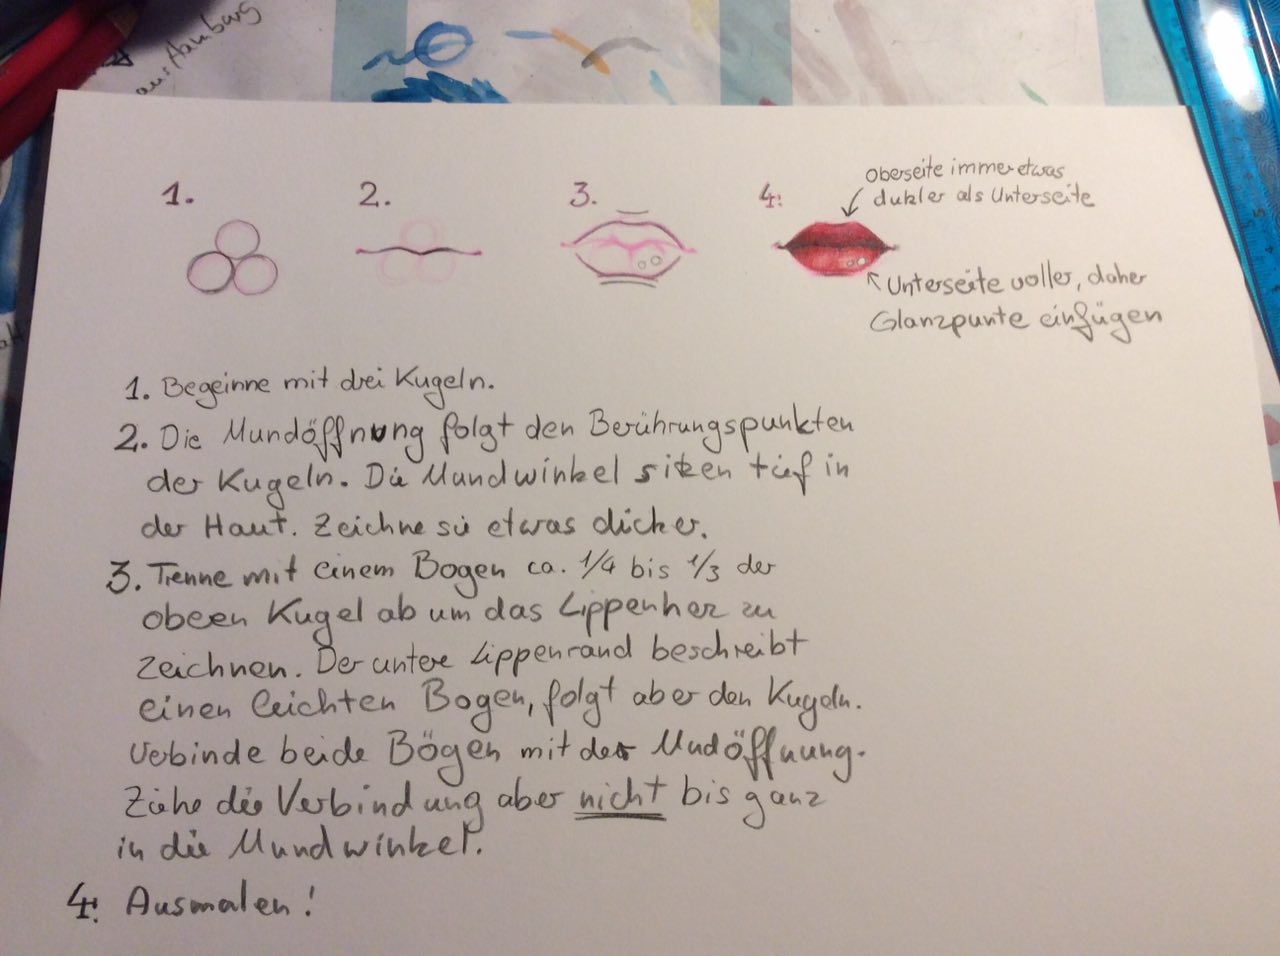 aus Hamburg
1.
2.
3.
4.
oberseite immer etwas
dukler als Unterseite
Unterseite voller, daher
Glanzpunte einfügen
1. Begeinne mit drei Kugeln.
2. Die Mundöffnung folgt den Berührungspunkten
der Kugeln. Die Mundwinkel sitzen tief in
der Haut. Zeichne sie etwas dicker.
3. Trenne mit einem Bogen ca. 1/4 bis 1/3 der
oberen Kugel ab um das Lippenherz zu
zeichnen. Der untere Lippenrand beschreibt
einen leichten Bogen, folgt aber den Kugeln.
Verbinde beide Bögen mit der Mudöffnung.
Ziehe die Verbindung aber nicht bis ganz
in die Mundwinkel.
4. Ausmalen!